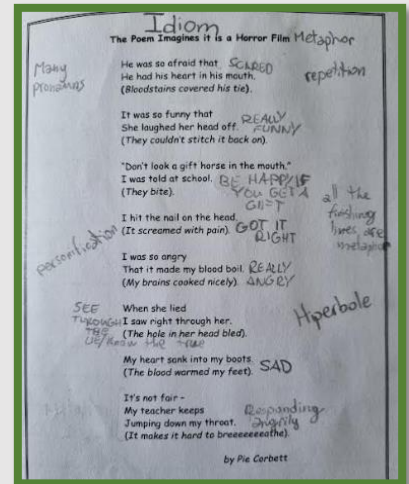 Idiom
The Poem Imagines it is a Horror Film Metaphor
He was so afraid that SCARED
He had his heart in his mouth.
(Bloodstains covered his tie).
Many
pronouns
repetition
It was so funny that REALLY
She laughed her head off. FUNNY
(They couldn't stitch it back on).
"Don't look a gift horse in the mouth,"
I was told at school. BE HAPPY IF
(They bite). YOU GET A
GIFT
all the
finishing
lines are
metaphor
I hit the nail on the head. GOT IT
(It screamed with pain). RIGHT
personification
I was so angry
That it made my blood boil. REALLY
(My brains cooked nicely). ANGRY
Hiperbole
SEE
THROUGH
THE
LIE/know the true
When she lied
I saw right through her.
(The hole in her head bled).
My heart sank into my boots.
(The blood warmed my feet). SAD
It's not fair -
My teacher keeps Responding
Jumping down my throat. angrily
(It makes it hard to breeeeeeeathe).
by Pie Corbett